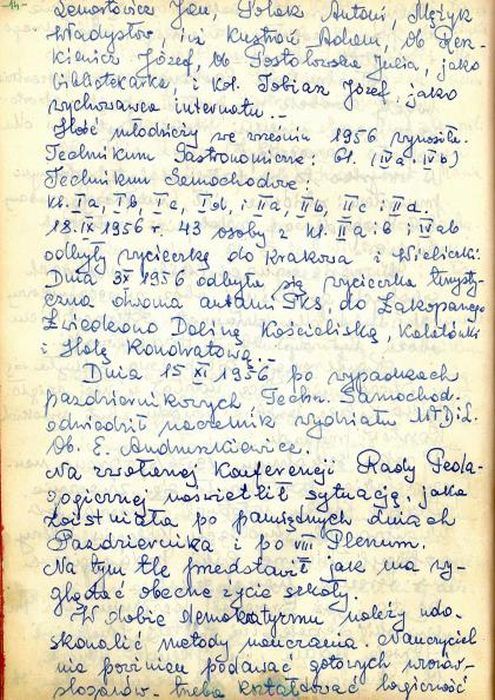 -14-
Lenartowicz Jan, Polak Antoni, Mężyk
Władysław, inż Kustroń Adam, ob Rze-
kiewicz Józef, ob Postołowska Julia, jako
bibliotekarka, i kol. Tobiasz Józef jako
wychowawca internatu.-
Ilość młodzieży we wrześniu 1956 wynosiła:
Technikum Gastronomiczne: 61. (IVa i IVb)
Technikum Samochodowe:
kl. Ia, Ib, Ic, Id, i IIa, IIb, IIc i IId.
18.IX 1956 r. 43 osoby z kl. IIa i b i IVab
odbyły wycieczkę do Krakowa i Wieliczki.
Dnia 3X 1956 odbyła się wycieczka turysty-
czna dwoma autami PKS, do Zakopanego
Zwiedzono Dolinę Kościeliską, Kalatówki
i Halę Kondratową.-
Dnia 15 XI 1956 po wypadkach
październikowych Techn. Samochod.
odwiedził naczelnik wydziału M.T.D.i.L.
Ob. E. Andruszkiewicz.
Na zwołanej Konferencji Rady Peda-
gogicznej naświetlił sytuację, jaka
zaistniała po pamiętnych dniach
Października i po VIII Plenum.
Na tym tle przedstawił jak ma wy-
glądać obecne życie szkoły.
W dobie demokratyzmu należy udo-
skonalić metody nauczania. Nauczyciel
nie powinien podawać gotowych
treba kształtować logiczność